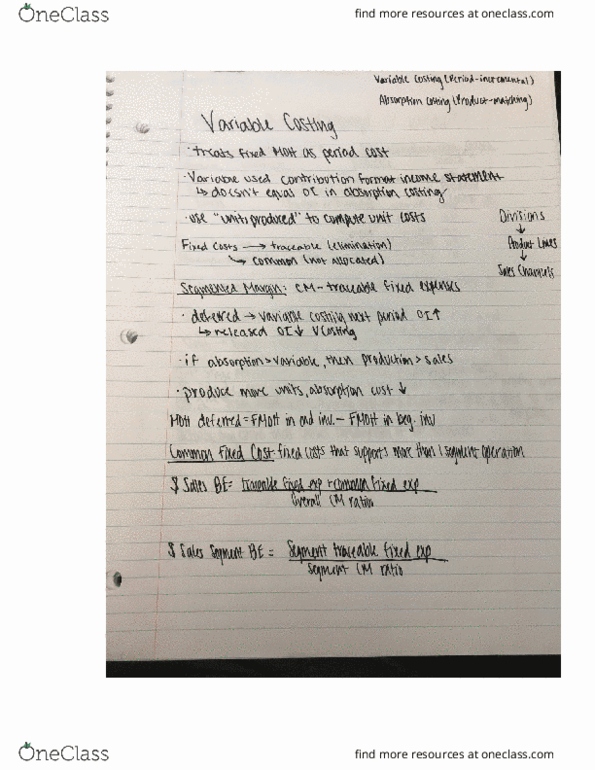 OneClass
find more resources at oneclass.com
Variable Costing (Period-incremental)
Absorption costing (Product-matching)
Variable Costing
· treats fixed MOH as period cost
· Variable used contribution format income statement
↳ doesn't equal OI in absorption costing
· use "units produced" to compute unit costs
Divisions
↓
Product Lines
↓
Sales Channels
Fixed Costs → traceable (elimination)
↘ common (not allocated)
Segmented Margin: CM - traceable fixed expenses
· deferred → variable costing next period OI↑
↳ released OI↓ VCosting
· if absorption > variable, then production > sales
· produce more units, absorption cost ↓
MOH deferred = FMOH in end inv. - FMOH in beg. inv
Common Fixed Cost - fixed costs that supports more than 1 segment operation
$ Sales BE = traceable fixed exp + common fixed exp
Overall CM ratio
$ Sales Segment BE = Segment traceable fixed exp
Segment CM ratio
OneClass
find more resources at oneclass.com